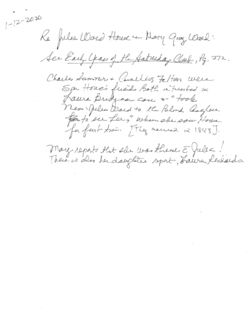 1-12-2020
Re Julia Ward Howe & Mary Gray Ward:
See Early Years of the Saturday Club, Pg. 
Charles Sumner & Cornelius Felton were
Sam Howe's friends both interested in
Laura Bridgman case & took
Miss Julia Ward to the Blind Asylum
to see her, whom she saw Howe
for first time [They married in 1843]
Mary reports that she was there & Julia!
There is also her daughter's report, Laura Richards